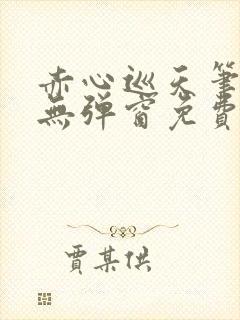 赤心巡天筆
無彈窗免費
賈某供